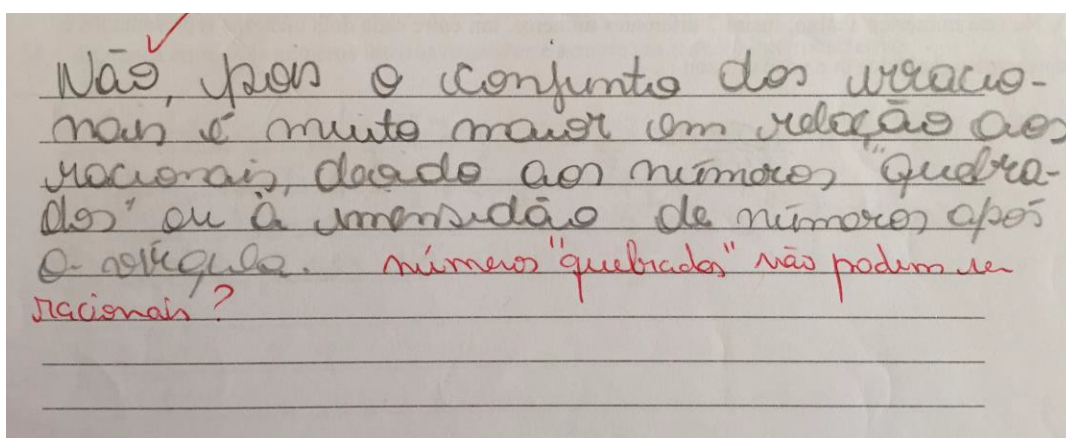 Não, pois o conjunto dos irracio-
nais é muito maior em relação aos
racionais, devido aos números "quebra-
dos" ou à imensidão de números após
a vírgula. números "quebrados" não podem ser
racionais?